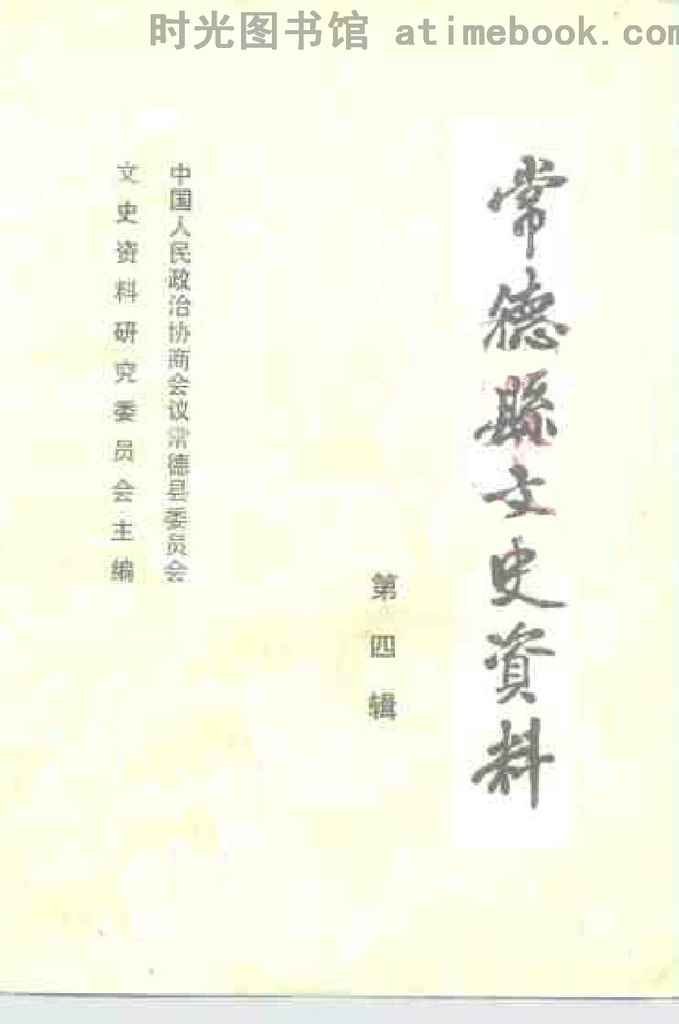 时光图书馆 atimebook.com
常德縣文史資料
第四辑
中国人民政治协商会议常德县委员会
文史资料研究委员会主编